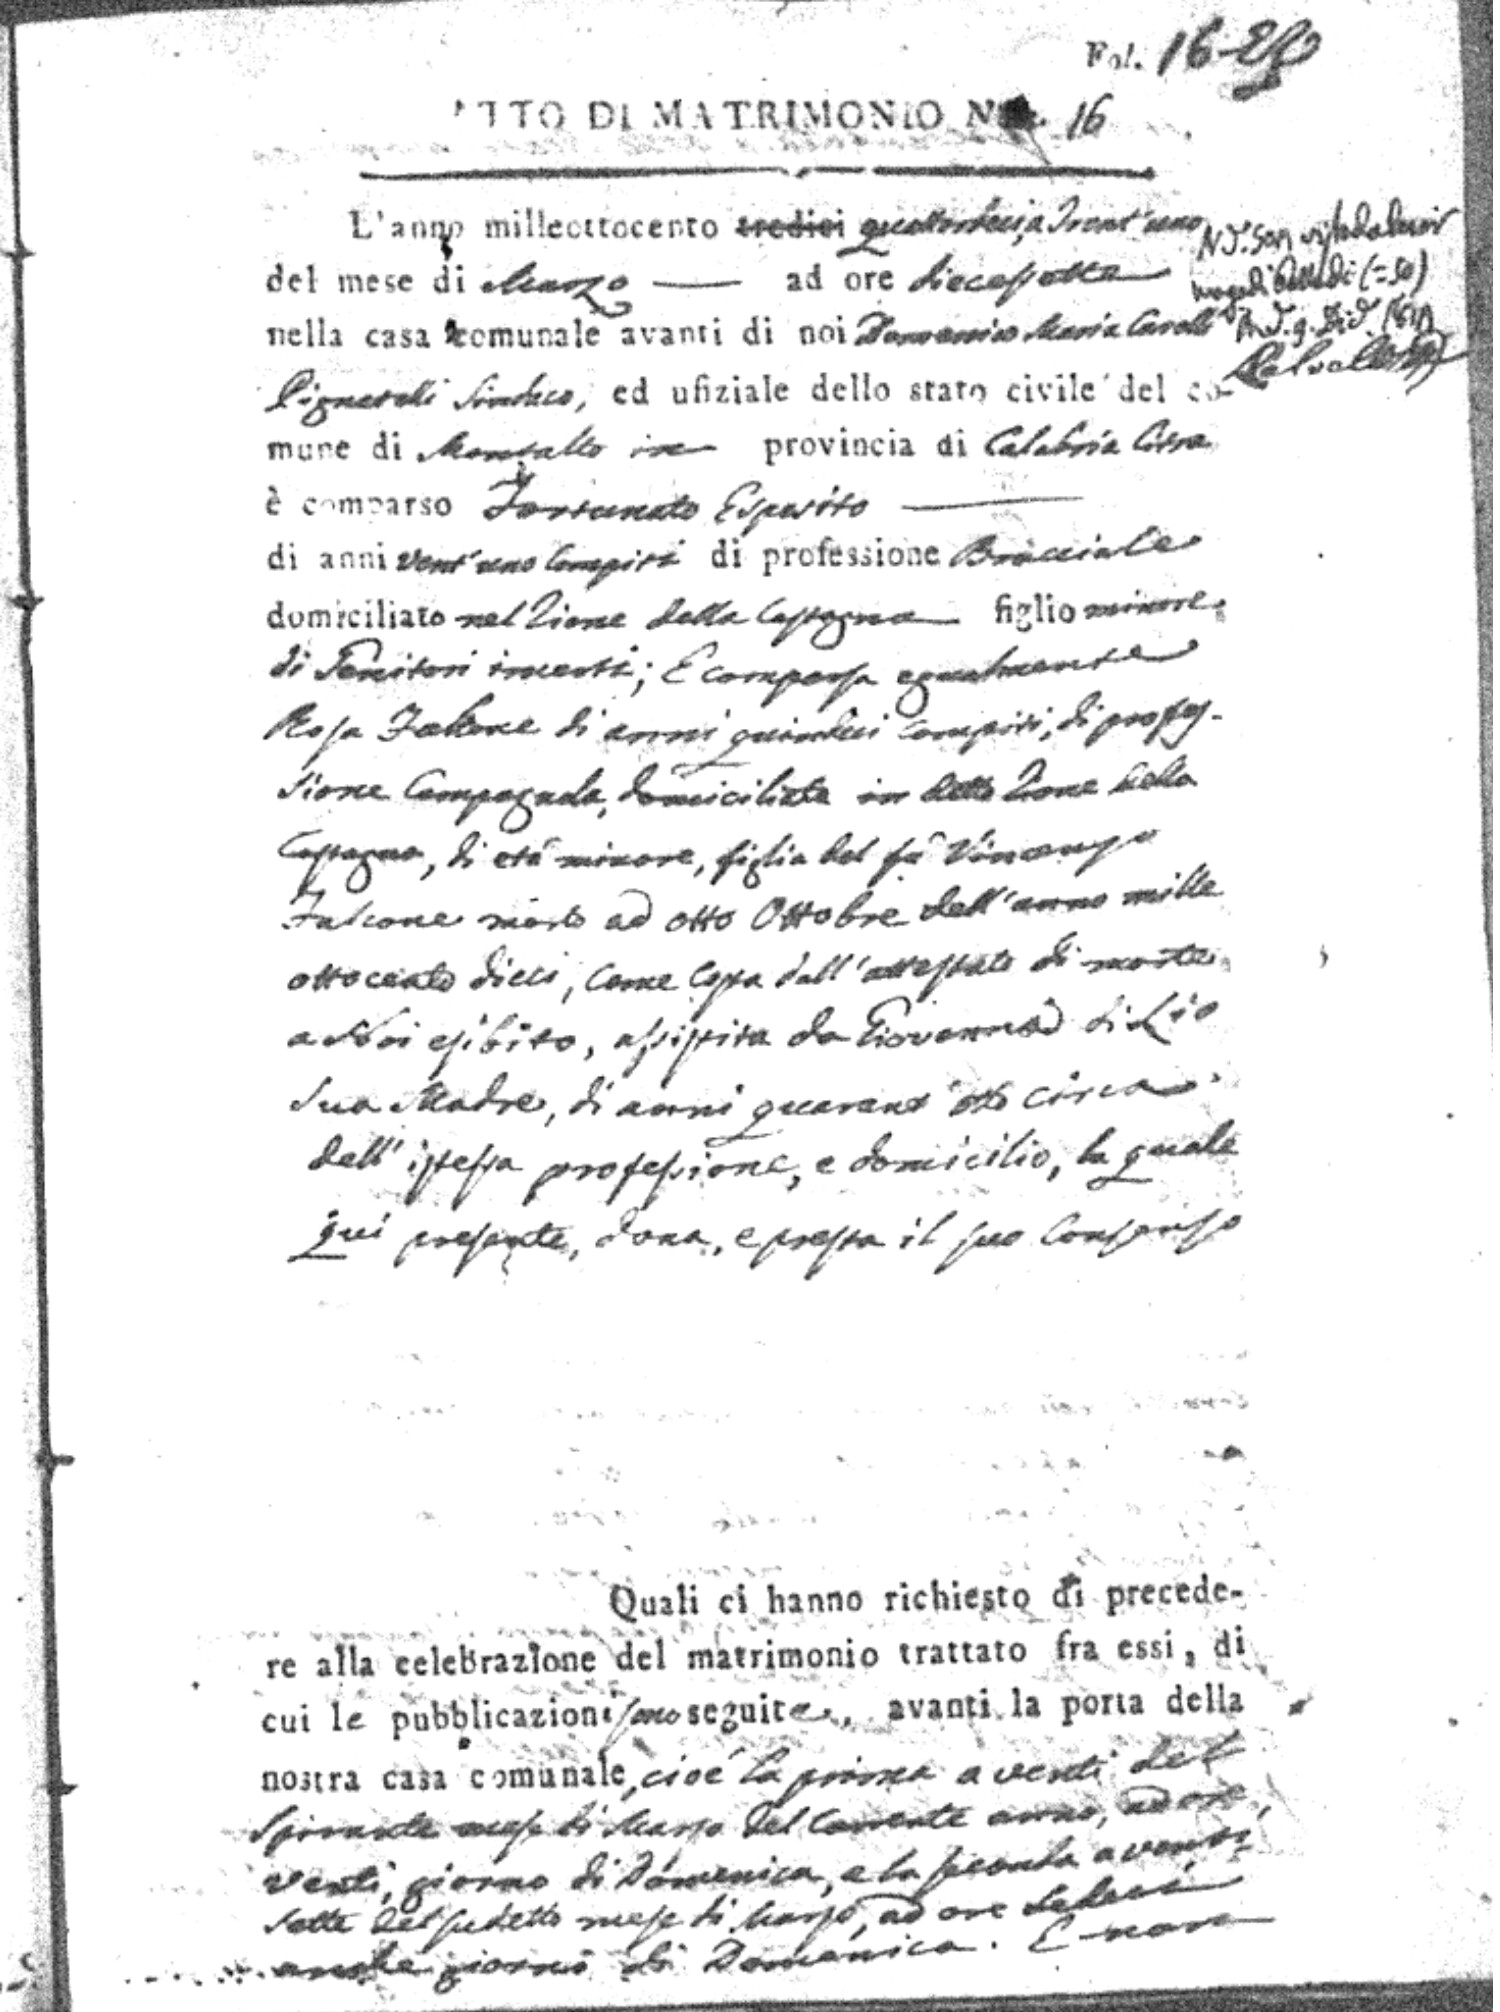 Fol. 16
ATTO DI MATRIMONIO N. 16
L'anno milleottocento tredici quattordici, a Trent'uno
del mese di Marzo — ad ore diecessette
nella casa comunale avanti di noi Domenico Maria
Pignatelli Sindaco, ed ufiziale dello stato civile del co-
mune di Montalto in provincia di Calabria Citra
è comparso Fortunato Esposito —
di anni vent'uno compiti di professione Bracciale
domiciliato nel Rione della figlio minore
di Genitori incerti; E comparsa egualmente
Rosa Falcone di anni quindici compiti, di profes-
sione Campagnola, domiciliata in detto Rione della
di età minore, figlia del fù Vincenzo
Falcone morto ad otto Ottobre dell'anno mille
ottocento dieci, come costa dall'attestato di morte
a Noi esibito, assistita da Giovanna di Lio
sua Madre, di anni quarant'otto circa
dell'istessa professione, e domicilio, la quale
qui presente, dona, e presta il suo Consenso
Quali ci hanno richiesto di precede-
re alla celebrazione del matrimonio trattato fra essi, di
cui le pubblicazioni sono seguite, avanti la porta della
nostra casa comunale, cioè la prima a venti del
spirante mese di Marzo del corrente anno, ad ore
venti, giorno di Domenica, e la seconda a venti
sette del sudetto mese di Marzo, ad ore sedeci
anche giorno di Domenica. E non